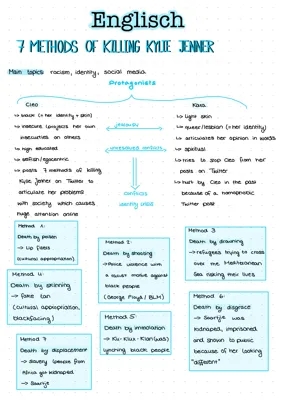 Englisch
7 METHODS OF KILLING KYLIE JENNER
Main topics: racism, identity, social media
Protagonists
Cleo
→ black (= her identity + skin)
→ insecure (projects her own
insecurities on others
→ high educated
→ selfish/egocentric
→ posts 7 methods of killing
Kylie Jenner on Twitter to
articulate her problems
with society which causes
huge attention online
unresolved conflicts
conflicts
identity crisis
Kara
→ light skin
→ queer/lesbian (= her identity)
→ articulates her opinion in words
→ spiritual
→ tries to stop Cleo from her
posts on Twitter
→ hurt by Cleo in the past
because of a homophobic
Twitter post
Method 1:
Death by poison
→ Lip fillers
(cultural appropriation)
Method 2:
Death by shooting
→ Police violence with
a racist motive against
black people
(George Floyd / BLM)
Method 3
Death by drowning
→ refugees trying to cross
over the Mediterranean
Sea risking their lives
Method 4:
Death by skinning
→ fake tan
(cultural appropriation,
blackfacing)
Method 5:
Death by immolation
→ Ku-Klux-Klan (was)
lynching black people
Method 6:
Death by disgrace
→ Saartjie was
kidnapped, imprisoned
and shown to public
because of her looking
"different"
Method 7
Death by displacement
→ slavery (people from
Africa got kidnapped
→ Saartjie